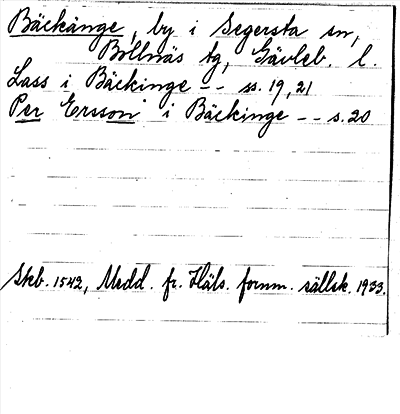 Bäckänge, by i Segersta sn,
Bollnäs tg, Gävleb. l.
Lass i Bäckinge -- ss. 19, 21
Per Ersson i Bäckinge -- s. 20
Skb. 1542, Medd. fr. Häls. fornm. sällsk. 1933.